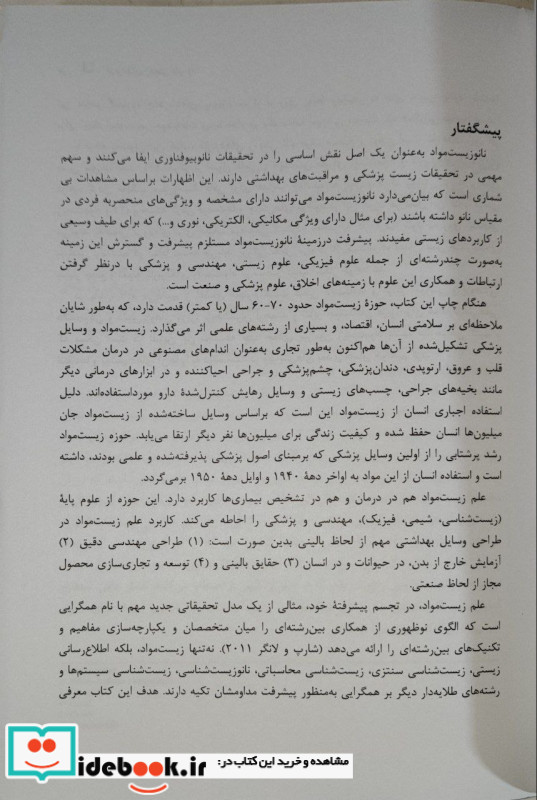 پیشگفتار
نانوزیست‌مواد به‌عنوان یک اصل نقش اساسی را در تحقیقات نانوبیوفناوری ایفا می‌کنند و سهم
مهمی در تحقیقات زیست پزشکی و مراقبت‌های بهداشتی دارند. این اظهارات براساس مشاهدات بی
شماری است که بیان‌می‌دارد نانوزیست‌مواد می‌توانند دارای مشخصه و ویژگی‌های منحصربه فردی در
مقیاس نانو داشته باشند (برای مثال دارای ویژگی مکانیکی، الکتریکی، نوری و...) که برای طیف وسیعی
از کاربردهای زیستی مفیدند. پیشرفت درزمینهٔ نانوزیست‌مواد مستلزم پیشرفت و گسترش این زمینه
به‌صورت چندرشته‌ای از جمله علوم فیزیکی، علوم زیستی، مهندسی و پزشکی با درنظر گرفتن
ارتباطات و همکاری این علوم با زمینه‌های اخلاق، علوم پزشکی و صنعت است.
هنگام چاپ این کتاب، حوزهٔ زیست‌مواد حدود ۷۰-۶۰ سال (یا کمتر) قدمت دارد، که به‌طور شایان
ملاحظه‌ای بر سلامتی انسان، اقتصاد، و بسیاری از رشته‌های علمی اثر می‌گذارد. زیست‌مواد و وسایل
پزشکی تشکیل‌شده از آن‌ها هم‌اکنون به‌طور تجاری به‌عنوان اندام‌های مصنوعی در درمان مشکلات
قلب و عروق، ارتوپدی، دندان‌پزشکی، چشم‌پزشکی و جراحی احیاکننده و در ابزارهای درمانی دیگر
مانند بخیه‌های جراحی، چسب‌های زیستی و وسایل رهایش کنترل‌شدهٔ دارو مورداستفاده‌اند. دلیل
استفاده اجباری انسان از زیست‌مواد این است که براساس وسایل ساخته‌شده از زیست‌مواد جان
میلیون‌ها انسان حفظ شده و کیفیت زندگی برای میلیون‌ها نفر دیگر ارتقا می‌یابد. حوزه زیست‌مواد
رشد پرشتابی را از اولین وسایل پزشکی که برمبنای اصول پزشکی پذیرفته‌شده و علمی بودند، داشته
است و استفاده انسان از این مواد به اواخر دههٔ ۱۹۴۰ و اوایل دههٔ ۱۹۵۰ برمی‌گردد.
علم زیست‌مواد هم در درمان و هم در تشخیص بیماری‌ها کاربرد دارد. این حوزه از علوم پایهٔ
(زیست‌شناسی، شیمی، فیزیک)، مهندسی و پزشکی را احاطه می‌کند. کاربرد علم زیست‌مواد در
طراحی وسایل بهداشتی مهم از لحاظ بالینی بدین صورت است: (۱) طراحی مهندسی دقیق (۲)
آزمایش خارج از بدن، در حیوانات و در انسان (۳) حقایق بالینی و (۴) توسعه و تجاری‌سازی محصول
مجاز از لحاظ صنعتی.
علم زیست‌مواد، در تجسم پیشرفتهٔ خود، مثالی از یک مدل تحقیقاتی جدید مهم با نام همگرایی
است که الگوی نوظهوری از همکاری بین‌رشته‌ای را میان متخصصان و یکپارچه‌سازی مفاهیم و
تکنیک‌های بین‌رشته‌ای را ارائه می‌دهد (شارپ و لانگر ۲۰۱۱). نه‌تنها زیست‌مواد، بلکه اطلاع‌رسانی
زیستی، زیست‌شناسی سنتزی، زیست‌شناسی محاسباتی، نانوزیست‌شناسی، زیست‌شناسی سیستم‌ها و
رشته‌های طلایه‌دار دیگر بر همگرایی به‌منظور پیشرفت مداومشان تکیه دارند. هدف این کتاب معرفی
مشاهده و خرید این کتاب در:
idebook.ir